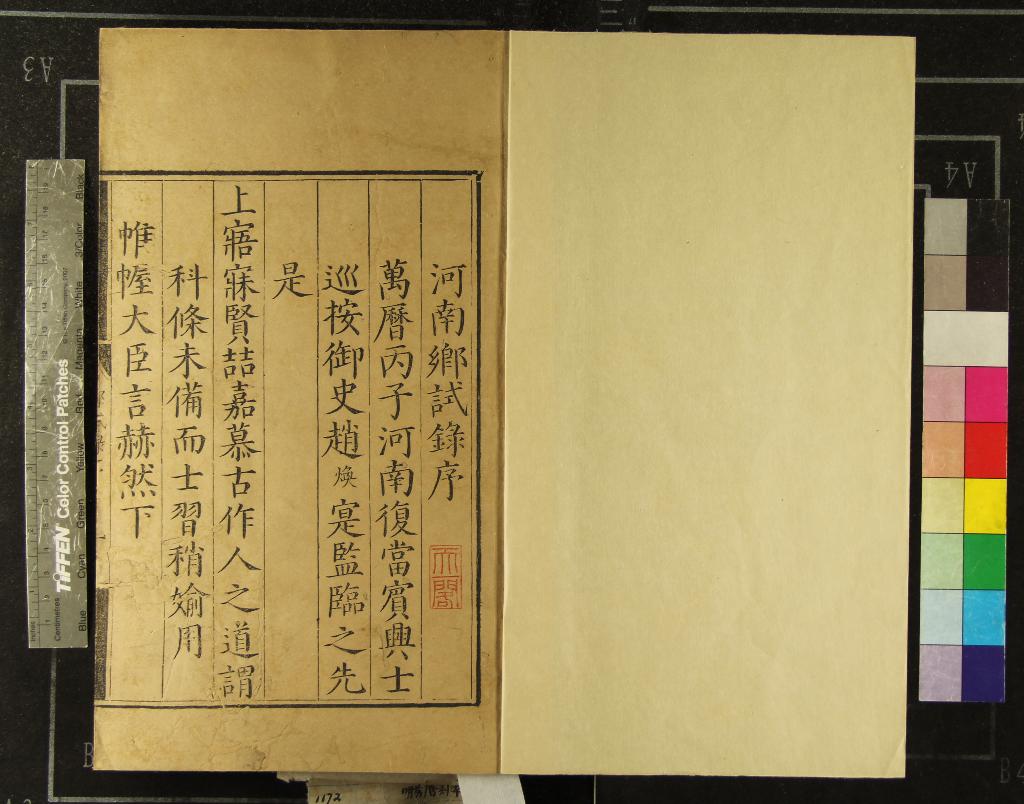 河南鄉試錄序
天閣
萬曆丙子河南復當賓興士
巡按御史趙煥寔監臨之先
是
上寤寐賢喆嘉慕古作人之道謂
科條未備而士習稍媮用
帷幄大臣言赫然下
A3
A4
TIFFEN Color Control Patches
Blue
Cyan
Green
Yellow
Red
Magenta
White
3/Color
Black
Centimetres
Inches
1172